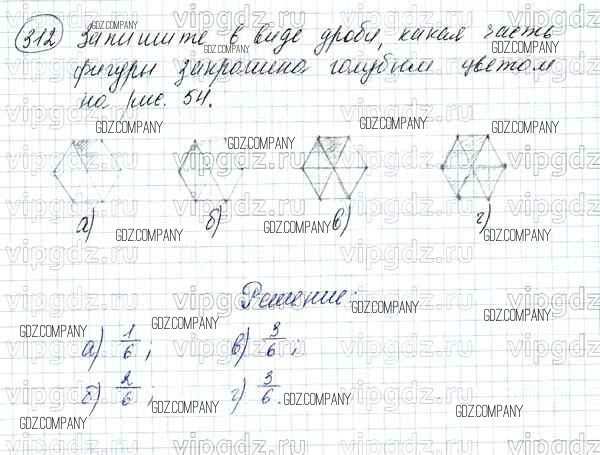 312 Запишите в виде дроби, какая часть
фигуры закрашена голубым цветом
на рис. 54.
а) б) в) г)
Решение:
а) 1/6; в) 3/6;
б) 2/6; г) 3/6.
GDZ.COMPANY
vipgdz.ru